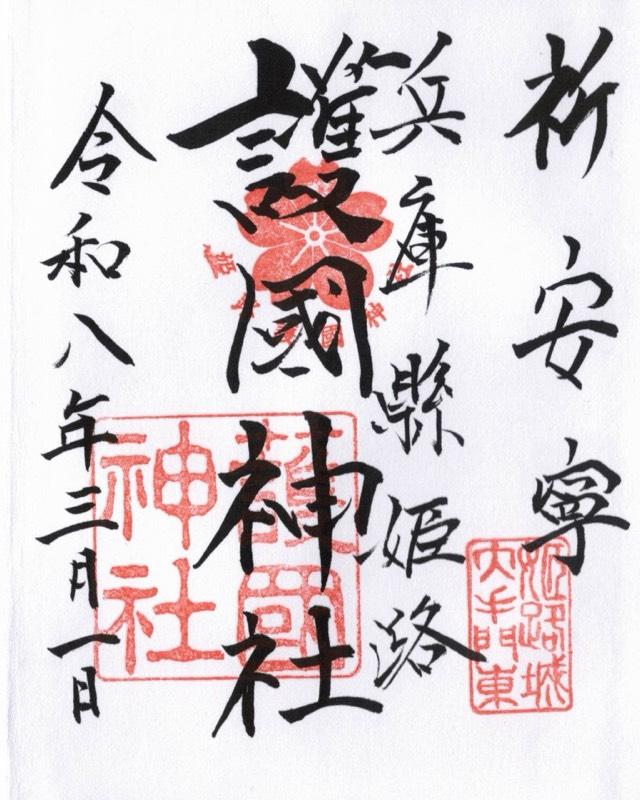 祈安寧
兵庫縣姫路
護國神社
令和八年三月一日
護國
神社
姫路城
大手門東